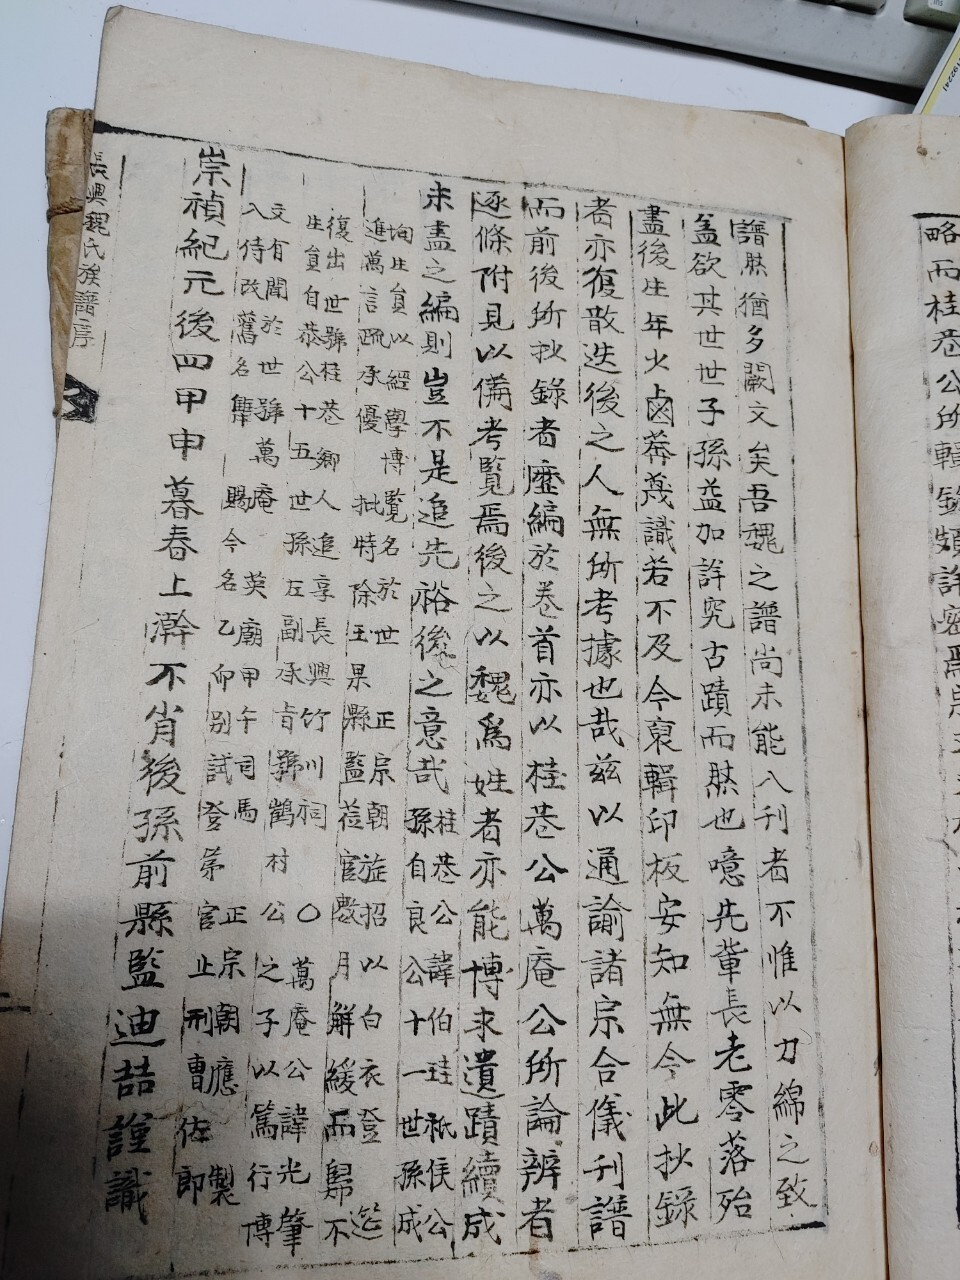 略而桂巷公所輯錄頗詳密焉
譜然猶多闕文矣吾魏之譜尚未能入刊者不惟以力綿之致
盖欲其世世子孫益加詳究古蹟而然也噫先輩長老零落殆
盡後生年少鹵莽蔑識若不及今裒輯印板安知無今此抄錄
者亦復散迭後之人無所考據也哉玆以通諭諸宗合儀刊譜
而前後所抄錄者歷編於卷首亦以桂巷公萬庵公所論辨者
逐條附見以備考覧焉後之以魏爲姓者亦能博求遺蹟續成
未盡之編則豈不是追先裕後之意哉
桂巷公諱伯珪祗侯公
孫自良公十一世孫成
均生員以經學博覧名於世 正宗朝旋招以白衣登
進萬言疏承優 批時除玉果縣監莅官數月解緩而歸不
復出世號桂巷鄉人追享長興竹川祠 ○萬庵公諱光肇
生員自恭公十五世孫左副承旨號鶴村公之子以篤行博
文有聞於世號萬庵 英廟甲午司馬 正宗朝應製
入侍改舊名 賜今名乙卯别試登第官止刑曹佐郎
崇禎紀元後四甲申暮春上澣不肖後孫前縣監迪喆謹識
長興魏氏族譜序